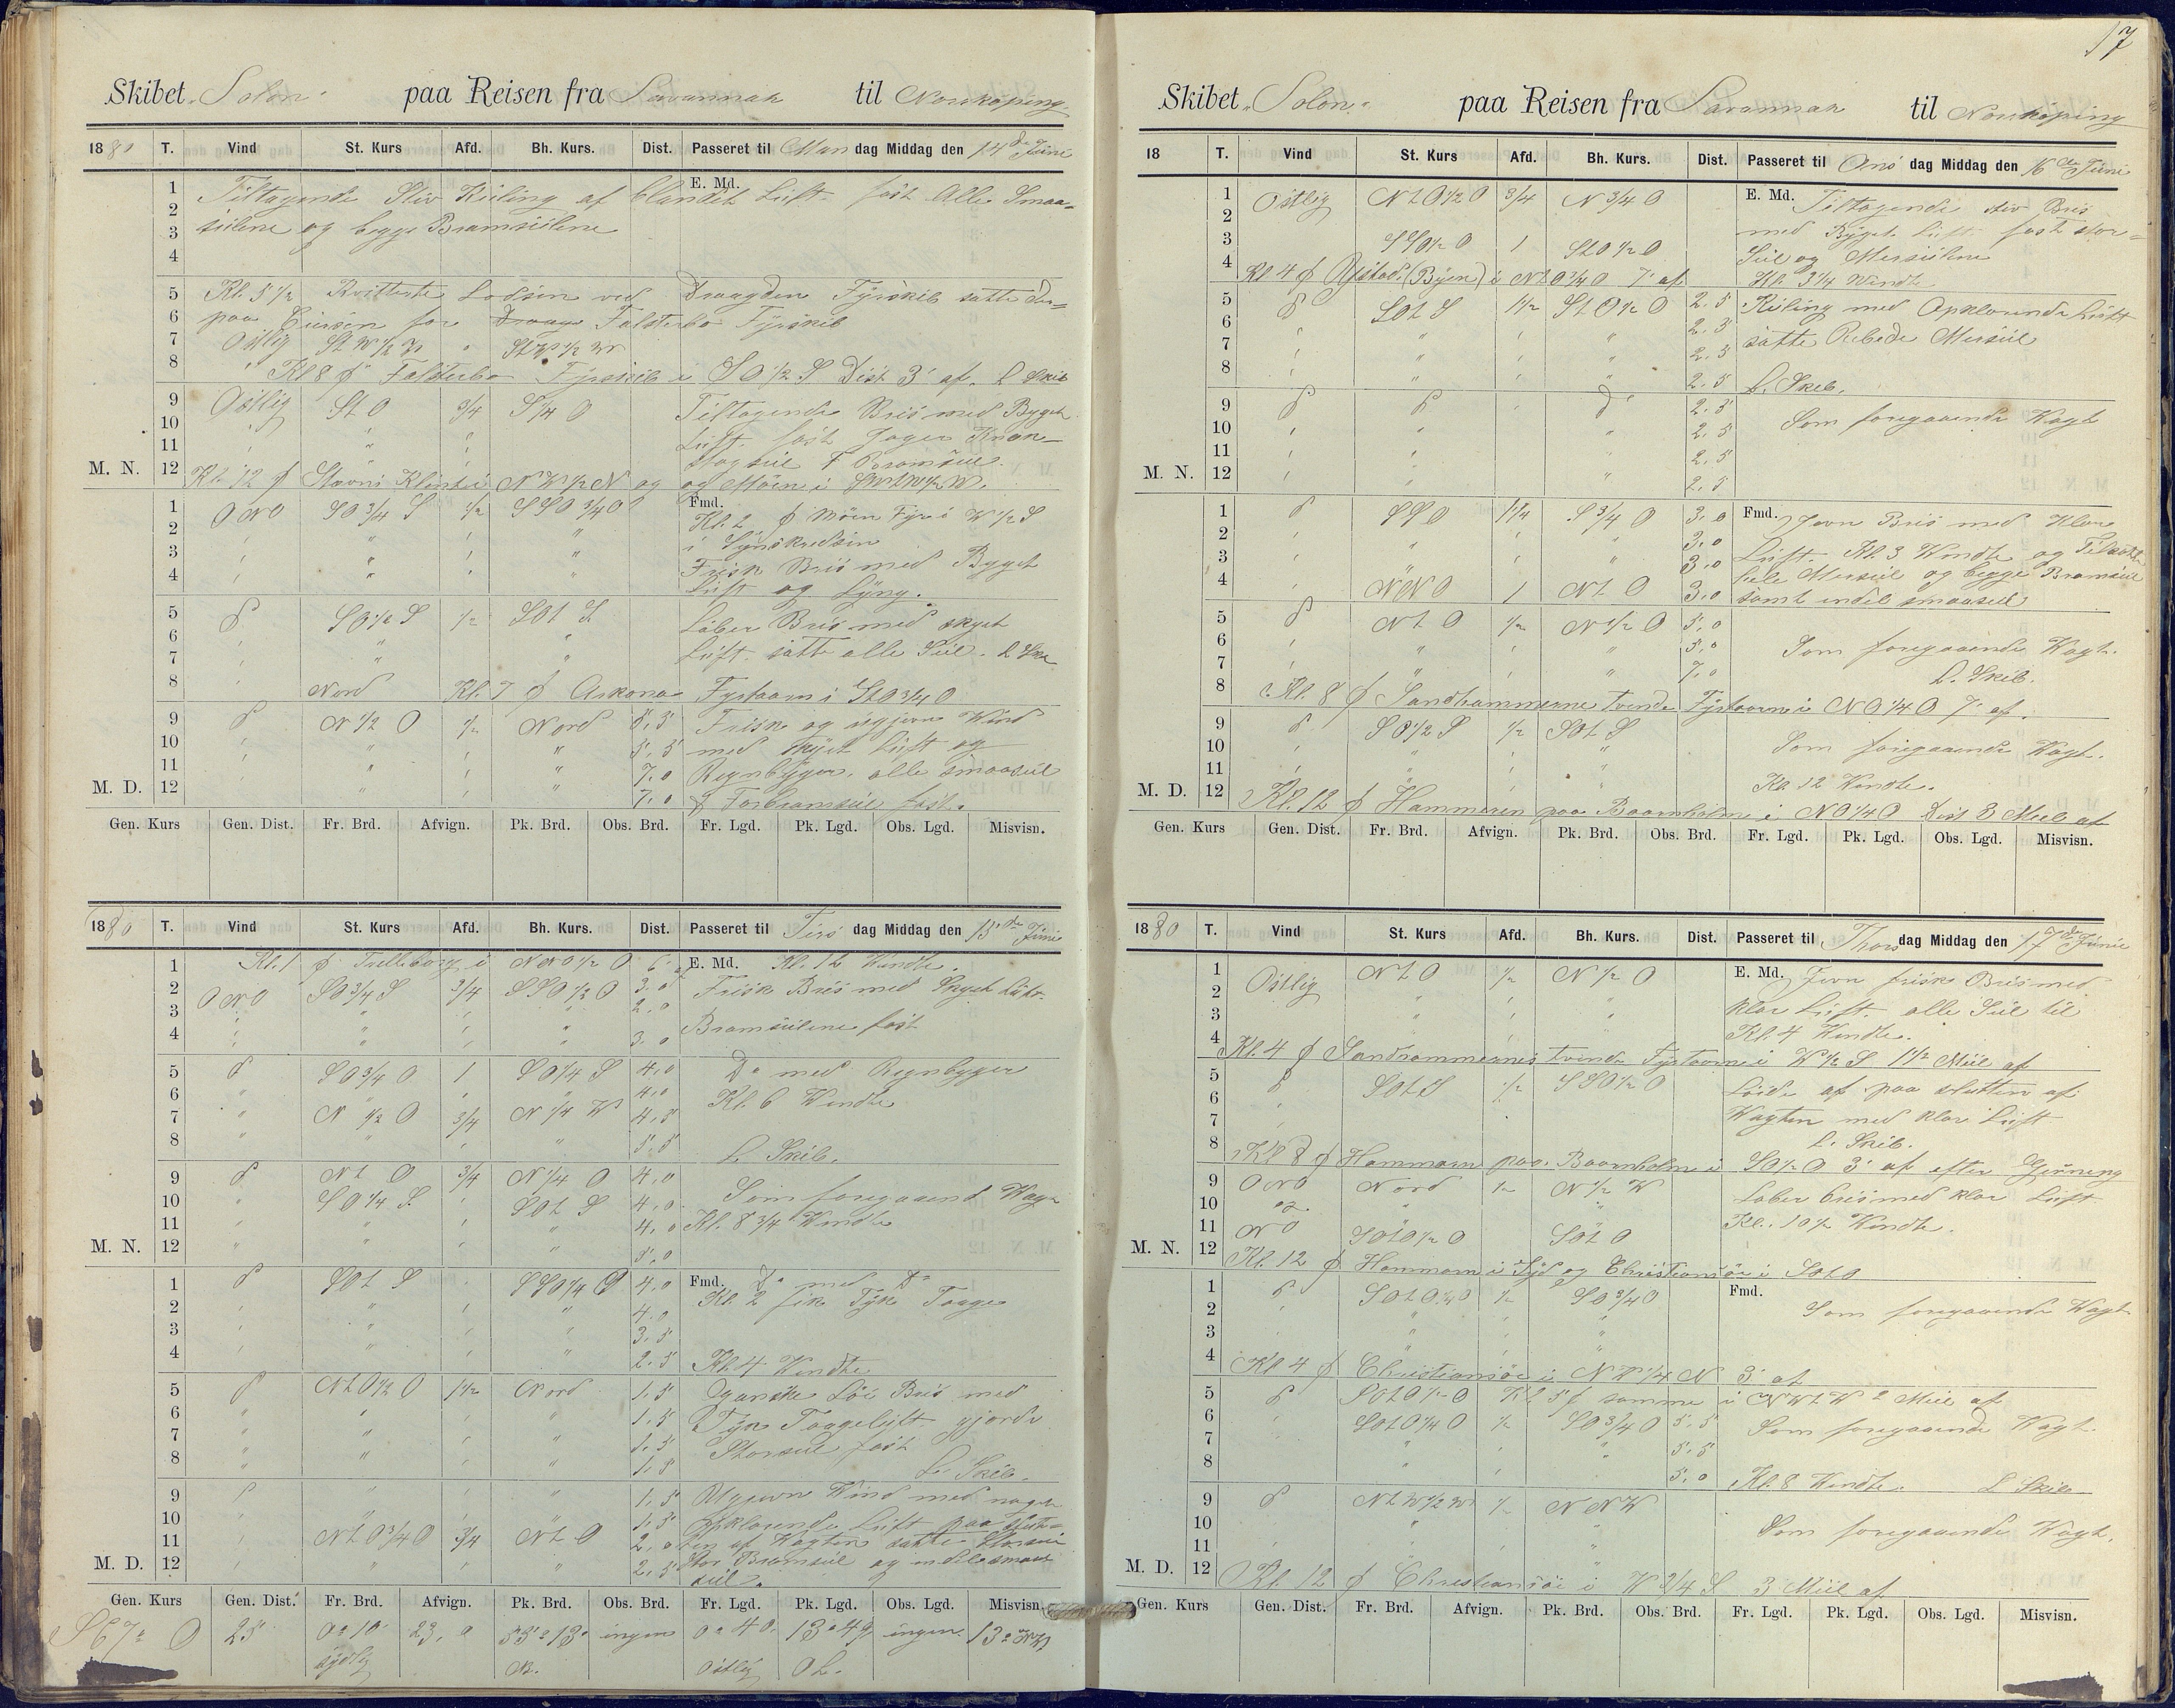 Skibet "Solon" paa Reisen fra Savannah til Norrköping
1880 T. Vind St. Kurs Afd. Bh. Kurs. Dist. Passeret til Man dag Middag den 14de Juni
E. Md.
1 Tiltagende Stiv Kuling af blandet Luft fast Alle Smaa=
2
3 seilene og begge Bramseilene
4
5 Kl. 5 1/2 Kvitterte Lodsen ved Draagden Fyrskib satte der=
6 paa Cursen for Falsterbo Fyrskib
7 Ostlig St W 1/2 W " St W 1/2 W
8 " Kl 8 p Falsterbo Fyrskib i SO 1/2 S Dist 3' af. L Skib
9 Ostlig St O 3/4 S 1/4 O Tiltagende Bris med Byget
10 " " " Luft. fast Jager
11 " " " Stagseil F Bramseil
M. N. 12 Kl. 12 p Stevns Klint i NW 1/2 N og og Möen i
Fmd.
1 ONO SO 3/4 S 1/2 SSO 3/4 O Kl. 2 p Möen Fyr i W 1/2 S
2 " " " " i Synskredsen
3 " " " " Frisk Bris med Byget
4 " " " " Luft og Lyng.
5 do SO 1/2 S 1/2 SOt S Laber Bris med skyet
6 " " " Luft. satte alle Seil. L Skib
7 " " "
8 " Nord Kl. 7 p Arkona Fyrtaarn i St O 3/4 O
9 do N 1/2 O 1/2 Nord 5,5 Frisk og ugjevn Vind
10 " " " " 5,5 med Skyet Luft og
11 " " " " 7,0 Regnbyger. alle smaaseil
M. D. 12 " " " 7,0 & Forbramseil fast.
Gen. Kurs Gen. Dist. Fr. Brd. Afvign. Pk. Brd. Obs. Brd. Fr. Lgd. Pk. Lgd. Obs. Lgd. Misvisn.
1880 T. Vind St. Kurs Afd. Bh. Kurs. Dist. Passeret til Tirs dag Middag den 15de Juni
1 Kl. 1 p Trelleborg i NNO 1/2 O E. Md. Kl. 12 Vendte.
2 ONO SO 3/4 S 3/4 SSO 1/2 O 3.0 Frisk Bris med Skyet Luft.
3 " " " " 2,0 Bramseilene fast
4 " " " " 3,0
5 do SO 3/4 O 1 SO 1/4 S 4,0 Do med Regnbyger
6 " " " " 4,0 Kl. 6 Vendte
7 " N 1/2 O 3/4 N 1/4 W 4,5
8 " " " " 5,5 L. Skib.
9 do Nt O 3/4 N 1/4 O 4,0 Som foregaaend Vagt
10 " SO 1/4 S " SOt S 4,0 Kl. 8 3/4 Vendte
11 " " " " 4,0
M. N. 12 " " " " 5,0
1 do SOt S " SSO 1/4 O 4,0 Fmd. Do med Do
2 " " " " 4,0 Kl. 2 fik Tyk Taage
3 " " " " 3,5
4 " " " " 2,5 Kl. 4 Vendte
5 do Nt O 1/2 O 1 1/2 Nord 1,5 Ganske Löi Bris med
6 " " " " 1,5 Tyk Taageluft gjorde
7 " " " " 1,5 Storseil fast
8 " " " " 1,5 L. Skib.
9 do " " " 1,5 Ugjevn Vind med noget
10 " " " 1,5 Opklarende Luft paa Slut=
11 " Nt O 3/4 O 3/4 Nt O 2,0 ten af Vagten satte Storseil
M. D. 12 " " " " 2,5 Stor Bramseil og endel smaa
seil.
Gen. Kurs Gen. Dist. Fr. Brd. Afvign. Pk. Brd. Obs. Brd. Fr. Lgd. Pk. Lgd. Obs. Lgd. Misvisn.
S 67° O 25 0° 10' 23,0 55° 13' ingen 0° 40' 13° 49' ingen 13° NW
sydlig N. Ostlig OL.
17
Skibet "Solon" paa Reisen fra Savannah til Norrköping
18 T. Vind St. Kurs Afd. Bh. Kurs. Dist. Passeret til Ons dag Middag den 16de Juni
1 Ostlig Nt O 1/2 O 3/4 N 3/4 O E. Md. Tiltagende stiv Bris
2 med Byget Luft fast stor=
3 SSO 1/2 O 1 St O 1/2 O Seil og Merseilene
4 Kl 4 p Ystad (Byen) i Nt O 3/4 O 7' af Kl. 3 1/4 Vendte
5 do SOt S 1 1/2 St O 1/2 O 2.5 Kuling med Opklarende Luft
6 " " " " 2.5 satte Rebede Merseil
7 " " " " 2.5
8 " " " " 2.5 L. Skib.
9 do do " do 2.5 Som foregaaende Vagt
10 " " " 2.5
11 " " " 2.5
M. N. 12 " " " 2.5
1 do SSO 1 1/4 S 3/4 O 3.0 Fmd. Jevn Bris med Klar
2 " " " " 3.0 Luft. Kl. 3 Vendte og Tilsatte
3 " " " " 3.0 hele Merseil og begge Bramseil
4 " NNO 1 Nt O 3.0 samt endel smaaseil
5 do Nt O 1/2 N 1/2 O 5.0
6 " " " " 5.0 Som foregaaende Vagt.
7 " " " " 7.0 L. Skib.
8 Kl. 8 p Sandhammerne tvende Fyrtaarne i NO 1/4 O 7' af.
9 do SO 1/2 S 1/2 SOt S
10 " " " " Som foregaaende Vagt.
11 " " " " Kl. 12 Vendte.
M. D. 12 Kl. 12 p Hammeren paa Boornholm i NO 1/4 O Dist 3 Miil af
Gen. Kurs Gen. Dist. Fr. Brd. Afvign. Pk. Brd. Obs. Brd. Fr. Lgd. Pk. Lgd. Obs. Lgd. Misvisn.
1880 T. Vind St. Kurs Afd. Bh. Kurs. Dist. Passeret til Thors dag Middag den 17de Juni
1 Ostlig Nt O 1/2 N 1/2 O E. Md. Jevn frisk Bris med
2 " " " klar Luft. alle Seil til
3 " " " Kl. 4 Vendte.
4 Kl. 4 p Sandhammernes tvende Fyrtaarne i W 1/2 S 1 1/2 Miil af
5 do SOt S 1/2 SSO 1/2 O Löide af paa slutten af
6 " Vagten med klar Luft
7 L. Skib.
8 Kl 8 p Hammeren paa Boornholm i SO 1/2 O 3' af efter Gisning
9 ONO Nord 1/2 N 1/2 W Laber bris med klar Luft
10 og " " Kl. 10 1/2 Vendte.
11 NO SOt O 1/2 O SOt O
M. N. 12 Kl. 12 p Hammeren i Syd og Christiansöe i SOt O
1 do SOt O 1/4 O 1/2 SO 3/4 O Fmd.
2 " " " " Som foregaaende Vagt
3 " " " "
4 Kl 4 p Christiansöe i NW 1/4 N 3' af
5 do SOt O 1/2 O Kl 5 p samme i NWt W 2 Miil af
6 " SOt O 1/4 O 1/2 SO 3/4 O 5.5 Som foregaaende Vagt.
7 " " " " 5.5
8 5.0 Kl. 8 Vendte. L Skib
9 do Nt W 1/2 W 1/2 NNW
10 " " " Som foregaaende Vagt.
11 " " "
M. D. 12 Kl. 12 p Christiansöe i W 3/4 S 3 Miil af
Gen. Kurs Gen. Dist. Fr. Brd. Afvign. Pk. Brd. Obs. Brd. Fr. Lgd. Pk. Lgd. Obs. Lgd. Misvisn.